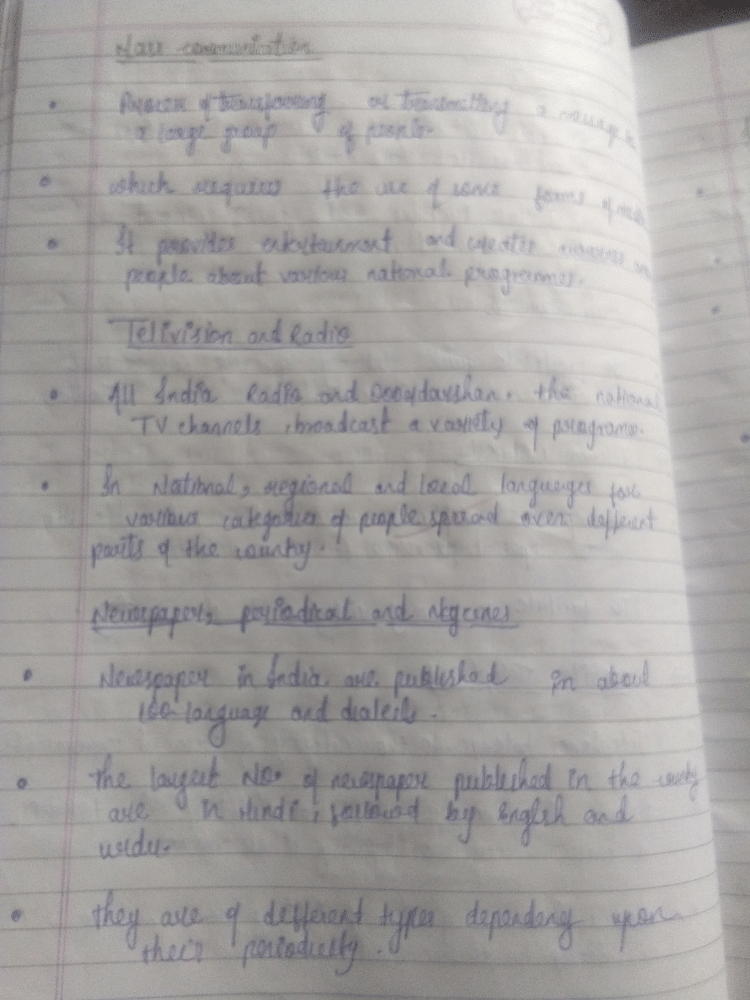 Mass communication
Process of transferring or transmitting a message to
a large group of people.
which requires the use of some forms of media
It provides entertainment and creates awareness among
people about various national programmes.
Telivision and Radio
All India Radio and Doordarshan, the national
TV channels, broadcast a variety of programs.
In National, regional and local languages for
various categories of people spread over different
parts of the country.
Newspaper, periodical and
Newspaper in India are published in about
100 language and dialects.
the largest No. of newspaper published in the country
are in Hindi, followed by English and
urdu.
they are of different types depending upon
their periodicity.